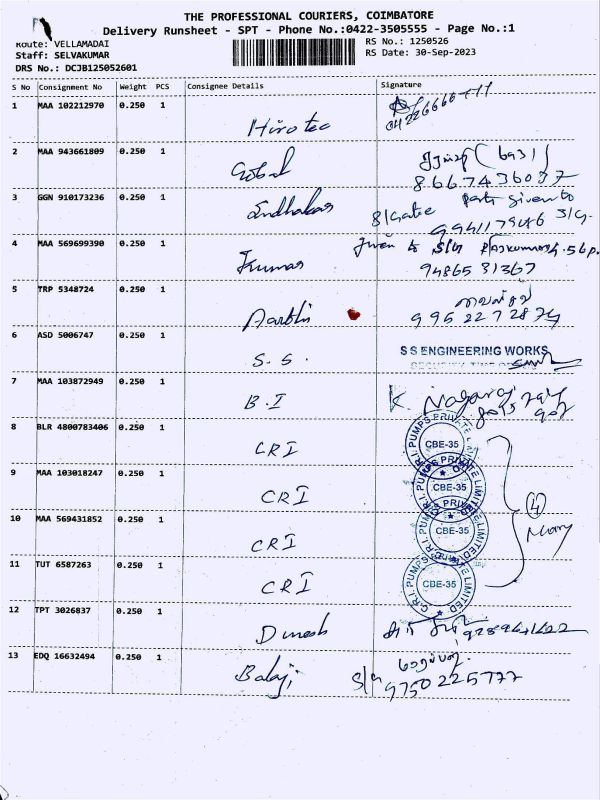 THE PROFESSIONAL COURIERS, COIMBATORE
Delivery Runsheet - SPT - Phone No.:0422-3505555 - Page No.:1
Route: VELLAMADAI
RS No.: 1250526
Staff: SELVAKUMAR
RS Date: 30-Sep-2023
DRS No.: DCJB125052601
S No Consignment No Weight PCS Consignee Details Signature
1 MAA 102212970 0.250 1 Hirotec
2 MAA 943661809 0.250 1 Gobal (6931)
8667436037
3 GGN 910173236 0.250 1 Indhakar
4 MAA 569699390 0.250 1 Kumar
9486531367
5 TRP 5348724 0.250 1 Aarthi
9952272874
6 ASD 5006747 0.250 1 S.S. S S ENGINEERING WORKS
7 MAA 103872949 0.250 1 B.I K. Nagaraj
8 BLR 4800783406 0.250 1 CRI C.R.I. PUMPS PRIVATE LIMITED CBE-35
9 MAA 103018247 0.250 1 CRI C.R.I. PUMPS PRIVATE LIMITED CBE-35
10 MAA 569431852 0.250 1 CRI C.R.I. PUMPS PRIVATE LIMITED CBE-35
4
11 TUT 6587263 0.250 1 CRI C.R.I. PUMPS PRIVATE LIMITED CBE-35
12 TPT 3026837 0.250 1 Dinesh
13 EDQ 16632494 0.250 1 Balaji S/G
9750225777